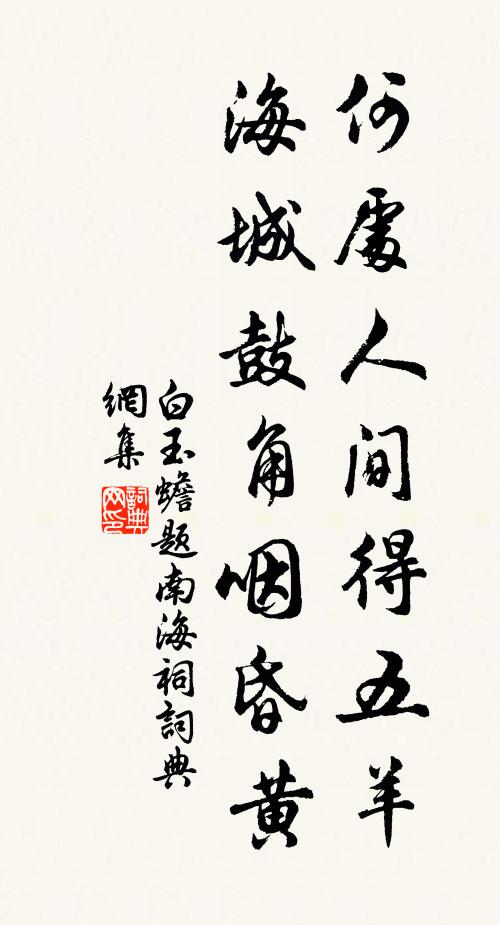 何處人間得五羊
海城鼓角咽昏黄
白玉蟾題南海祠詞典
網集
詞典網印